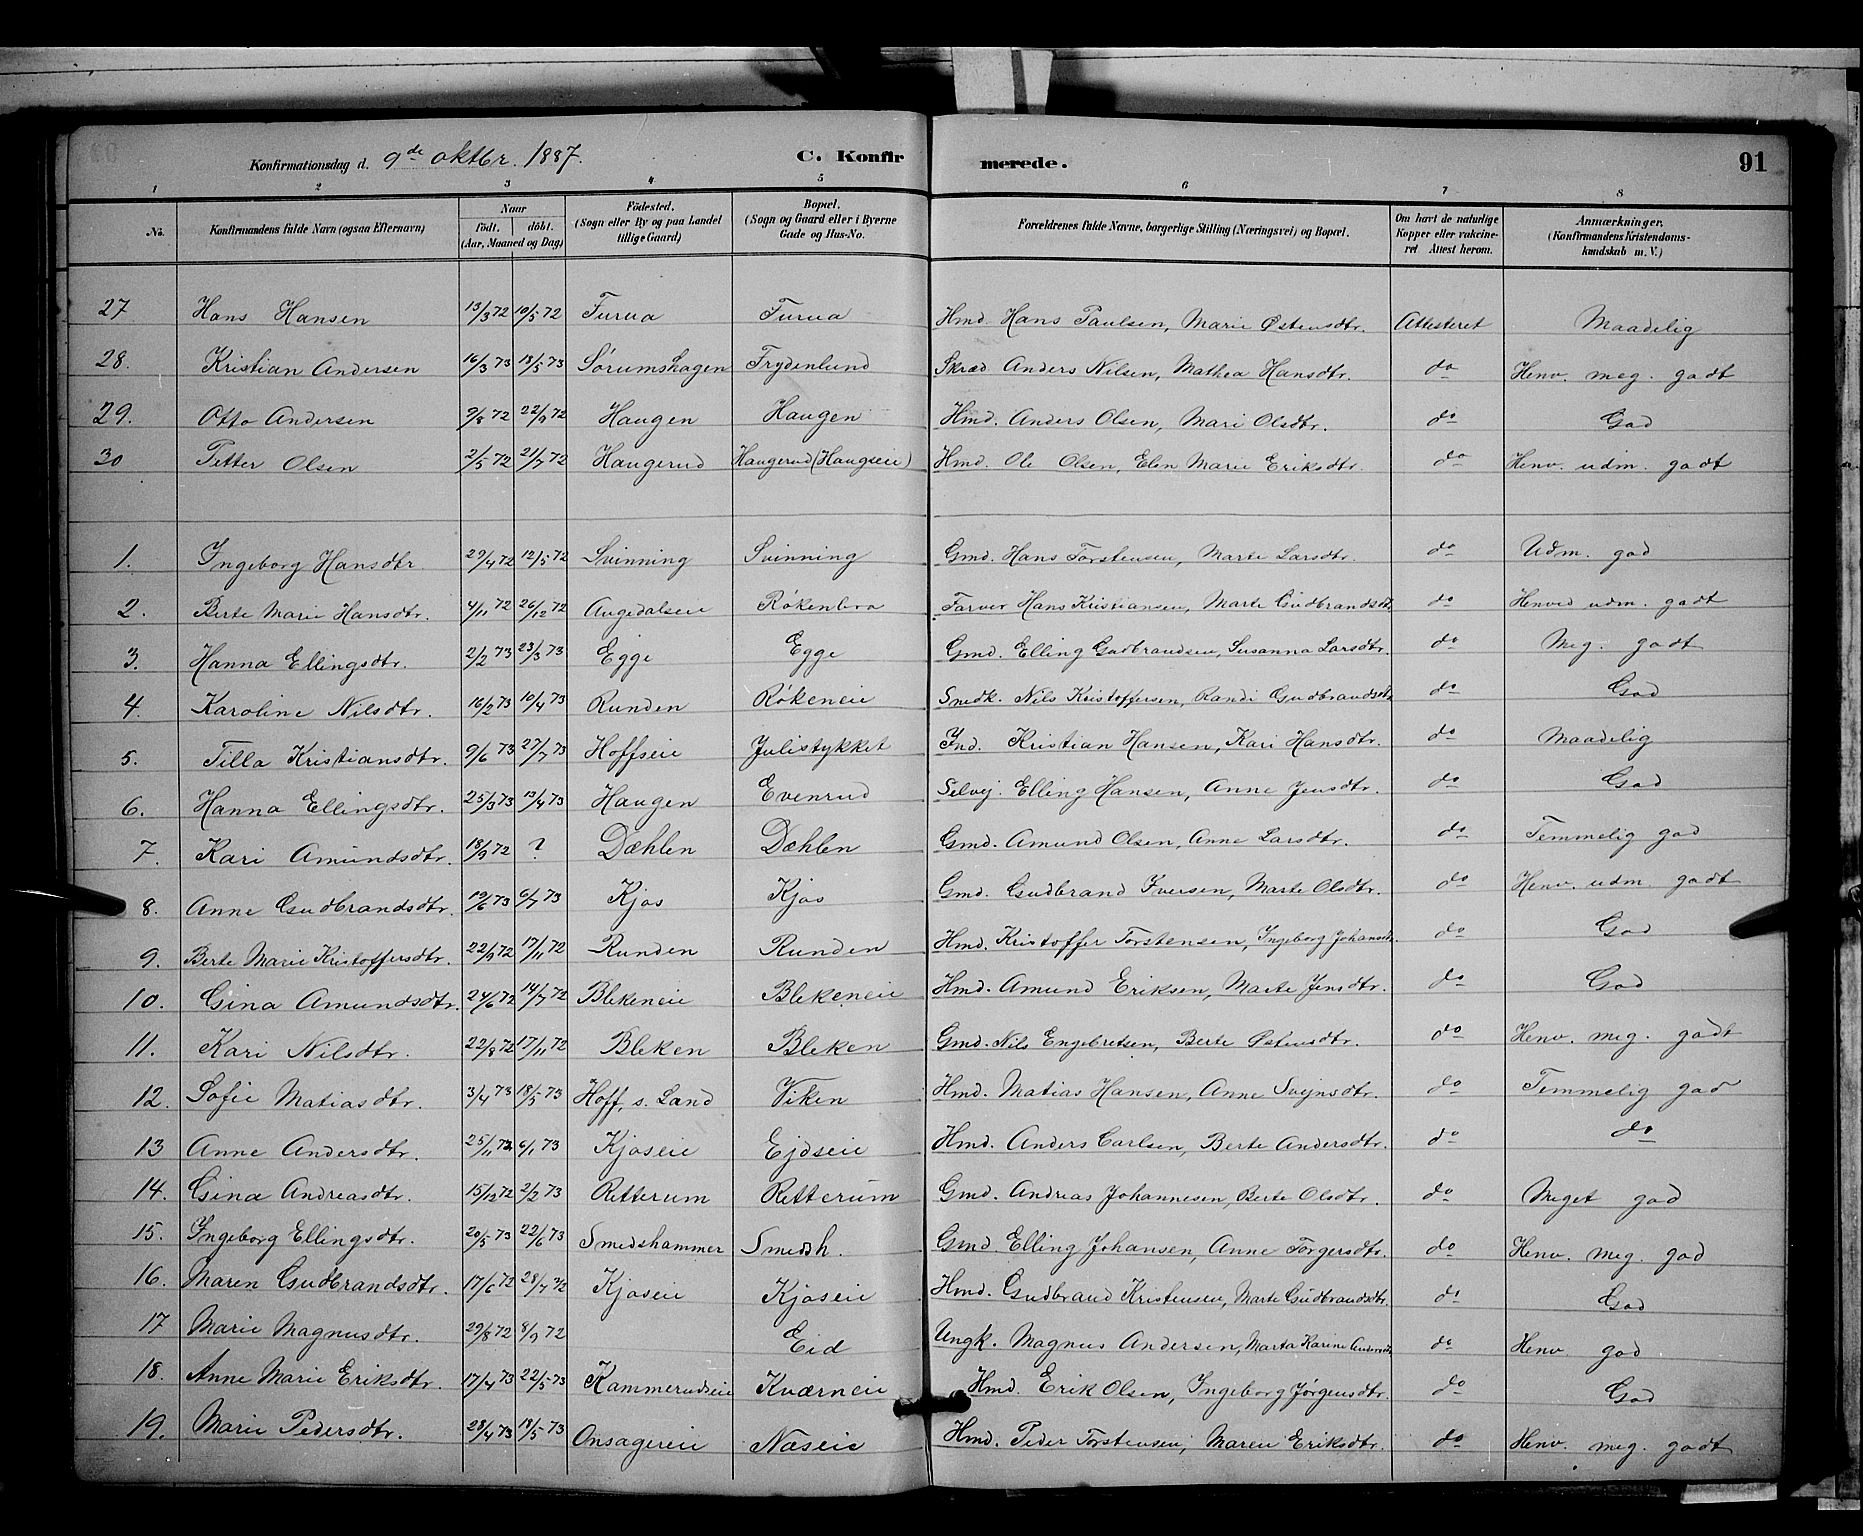 Konfirmationsdag d. 9de oktbr. 1887. C. Konfirmerede. 91
1 2 3 4 5 6 7 8
No. Konfirmandens fulde Navn (ogsaa Efternavn) Naar født. døbt. (Aar, Maaned og Dag) Fødested. (Sogn eller By og paa Landet tillige Gaard) Bopæl. (Sogn og Gaard eller i Byerne Gade og Hus-No. Forældrenes fulde Navne, borgerlige Stilling (Næringsvei) og Bopæl. Om havt de naturlige Kopper eller vakcineret Attest herom. Anmærkninger. (Konfirmandens Kristendomskundskab m. V.)
27 Hans Hansen 13/3 72 19/5 72 Furua Furua Hmd. Hans Paulsen, Marie Østensdtr. Attesteret Maadelig
28. Kristian Andersen 16/3 73 18/5 73 Sørumshagen Frydenlund Skræd Anders Nilsen, Mathea Hansdtr. do Henv. meg. godt
29. Otto Andersen 9/8 72 22/9 72 Haugen Haugen Hmd. Anders Olsen, Mari Olsdtr. do God
30 Petter Olsen 2/5 72 21/7 72 Haugerud Haugerud (Haugseie) Hmd. Ole Olsen, Elen Marie Eriksdtr. do Henv. udm. godt
1. Ingeborg Hansdtr 29/4 72 12/5 72 Svinning Svinning Gmd. Hans Torstensen, Marte Larsdtr. do Udm. god
2. Berte Marie Hansdtr. 4/11 72 26/12 72 Augedalseie Røkenbro Farver Hans Kristiansen, Marte Gudbrandsdtr do Henved udm. godt
3. Hanna Ellingsdtr. 2/2 73 23/3 73 Egge Egge Gmd. Elling Gudbrandsen, Susanna Larsdtr. do Meg. godt
4. Karoline Nilsdtr. 16/2 73 10/4 73 Runden Røkeneie Smedk. Nils Kristoffersen, Randi Gudbrandsdtr do God
5. Tilla Kristiansdtr. 9/6 73 27/7 73 Hoffseie Julistykket Ind. Kristian Hansen, Kari Hansdtr. do Maadelig
6. Hanna Ellingsdtr. 25/3 73 13/4 73 Haugen Evenrud Selvej. Elling Hansen, Anne Jensdtr. do God
7. Kari Amundsdtr. 18/9 72 ? Dæhlen Dæhlen Gmd. Amund Olsen, Anne Larsdtr. do Temmelig god
8. Anne Gudbrandsdtr. 19/6 73 6/7 73 Kjos Kjos Gmd. Gudbrand Iversen, Marte Olsdtr. do Henv. udm. godt
9. Berte Marie Kristoffersdtr. 22/9 72 17/11 72 Runden Runden Hmd. Kristoffer Torstensen, Ingeborg Johansdr. do God
10. Gina Amundsdtr. 24/6 72 14/7 72 Blekeneie Blekeneie Hmd. Amund Eriksen, Marte Jensdtr. do God
11. Kari Nilsdtr. 22/8 72 17/11 72 Bleken Bleken Gmd. Nils Engebretsen, Berte Østensdtr. do Henv. meg. godt
12. Sofie Matiasdtr. 3/4 73 18/5 73 Hoff, s. Land Viken Hmd. Matias Hansen, Anne Svejnsdtr. do Temmelig god
13 Anne Andersdtr. 25/11 72 6/1 73 Kjoseie Ejdseie Hmd. Anders Carlsen, Berte Andersdtr. do do
14. Gina Andreasdtr. 15/12 72 2/2 73 Ritterum Ritterum Gmd. Andreas Johannesen, Berte Olsdtr. do Meget god
15. Ingeborg Ellingsdtr. 20/5 73 22/6 73 Smedshammer Smedsh. Gmd. Elling Johansen, Anne Torgersdtr. do Henv. meg. god
16. Maren Gudbrandsdtr. 17/6 72 28/7 72 Kjoseie Kjoseie Hmd. Gudbrand Kristensen, Marte Gudbrandsdtr. do God
17 Marie Magnusdtr. 29/8 72 8/9 72 Eid Ungk. Magnus Andersen, Marta Karine Andersdtr do Henv god
18. Anne Marie Eriksdtr. 17/4 73 22/5 73 Kammerudseie Kværneie Hmd. Erik Olsen, Ingeborg Jørgensdtr. do God
19. Marie Pedersdtr. 28/4 73 18/5 73 Onsagereie Næseie Hmd. Peder Torstensen, Maren Eriksdtr. do Henv. meg. godt